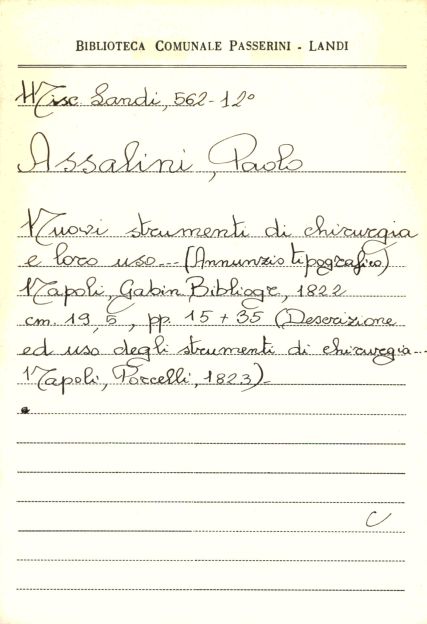 BIBLIOTECA COMUNALE PASSERINI - LANDI
Misc. Landi, 562-12°
Assalini, Paolo
Nuovi strumenti di chirurgia
e loro uso... (Annunzio tipografico)
Napoli, Gabin. Bibliogr., 1822
cm. 19,5, pp. 15 + 35 (Descrizione
ed uso degli strumenti di chirurgia...
Napoli, Porcelli, 1823).
C